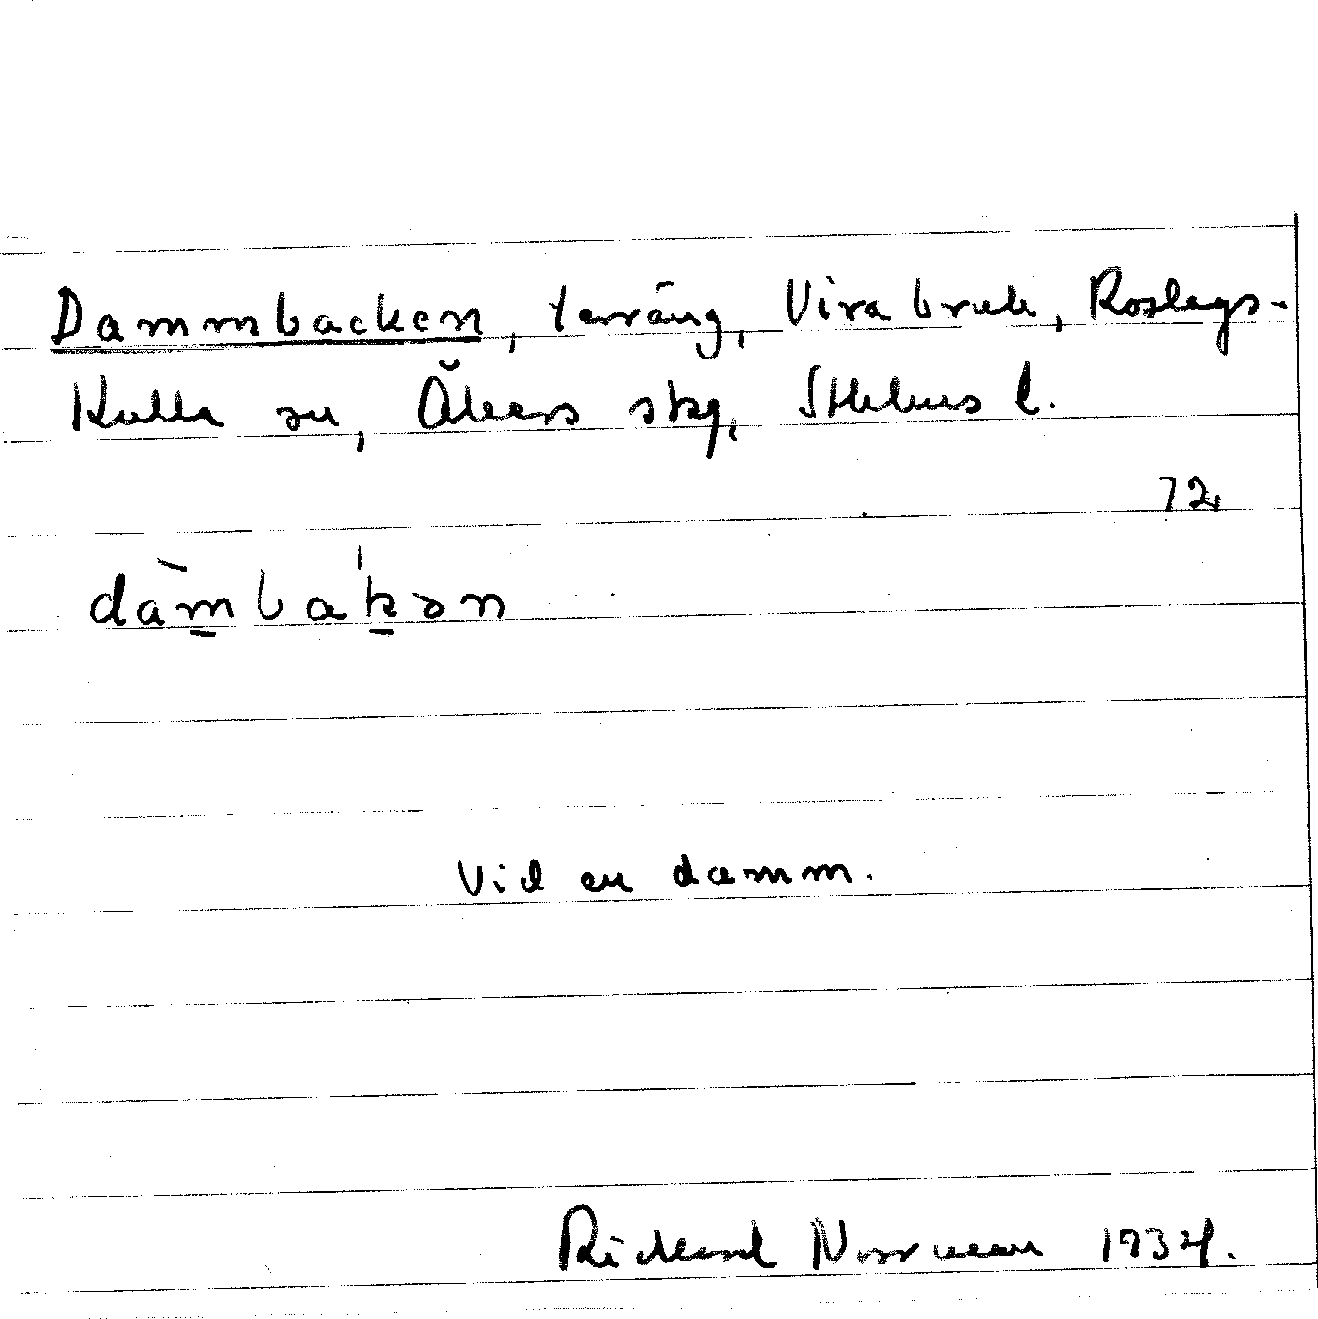 Dammbacken, terräng, Vira bruk, Roslags-
Kulla sn, Åkers skg, Sthlms l.
72
dàm̠bak̠ən
Vid en damm.
Rickard Norrman 1934.